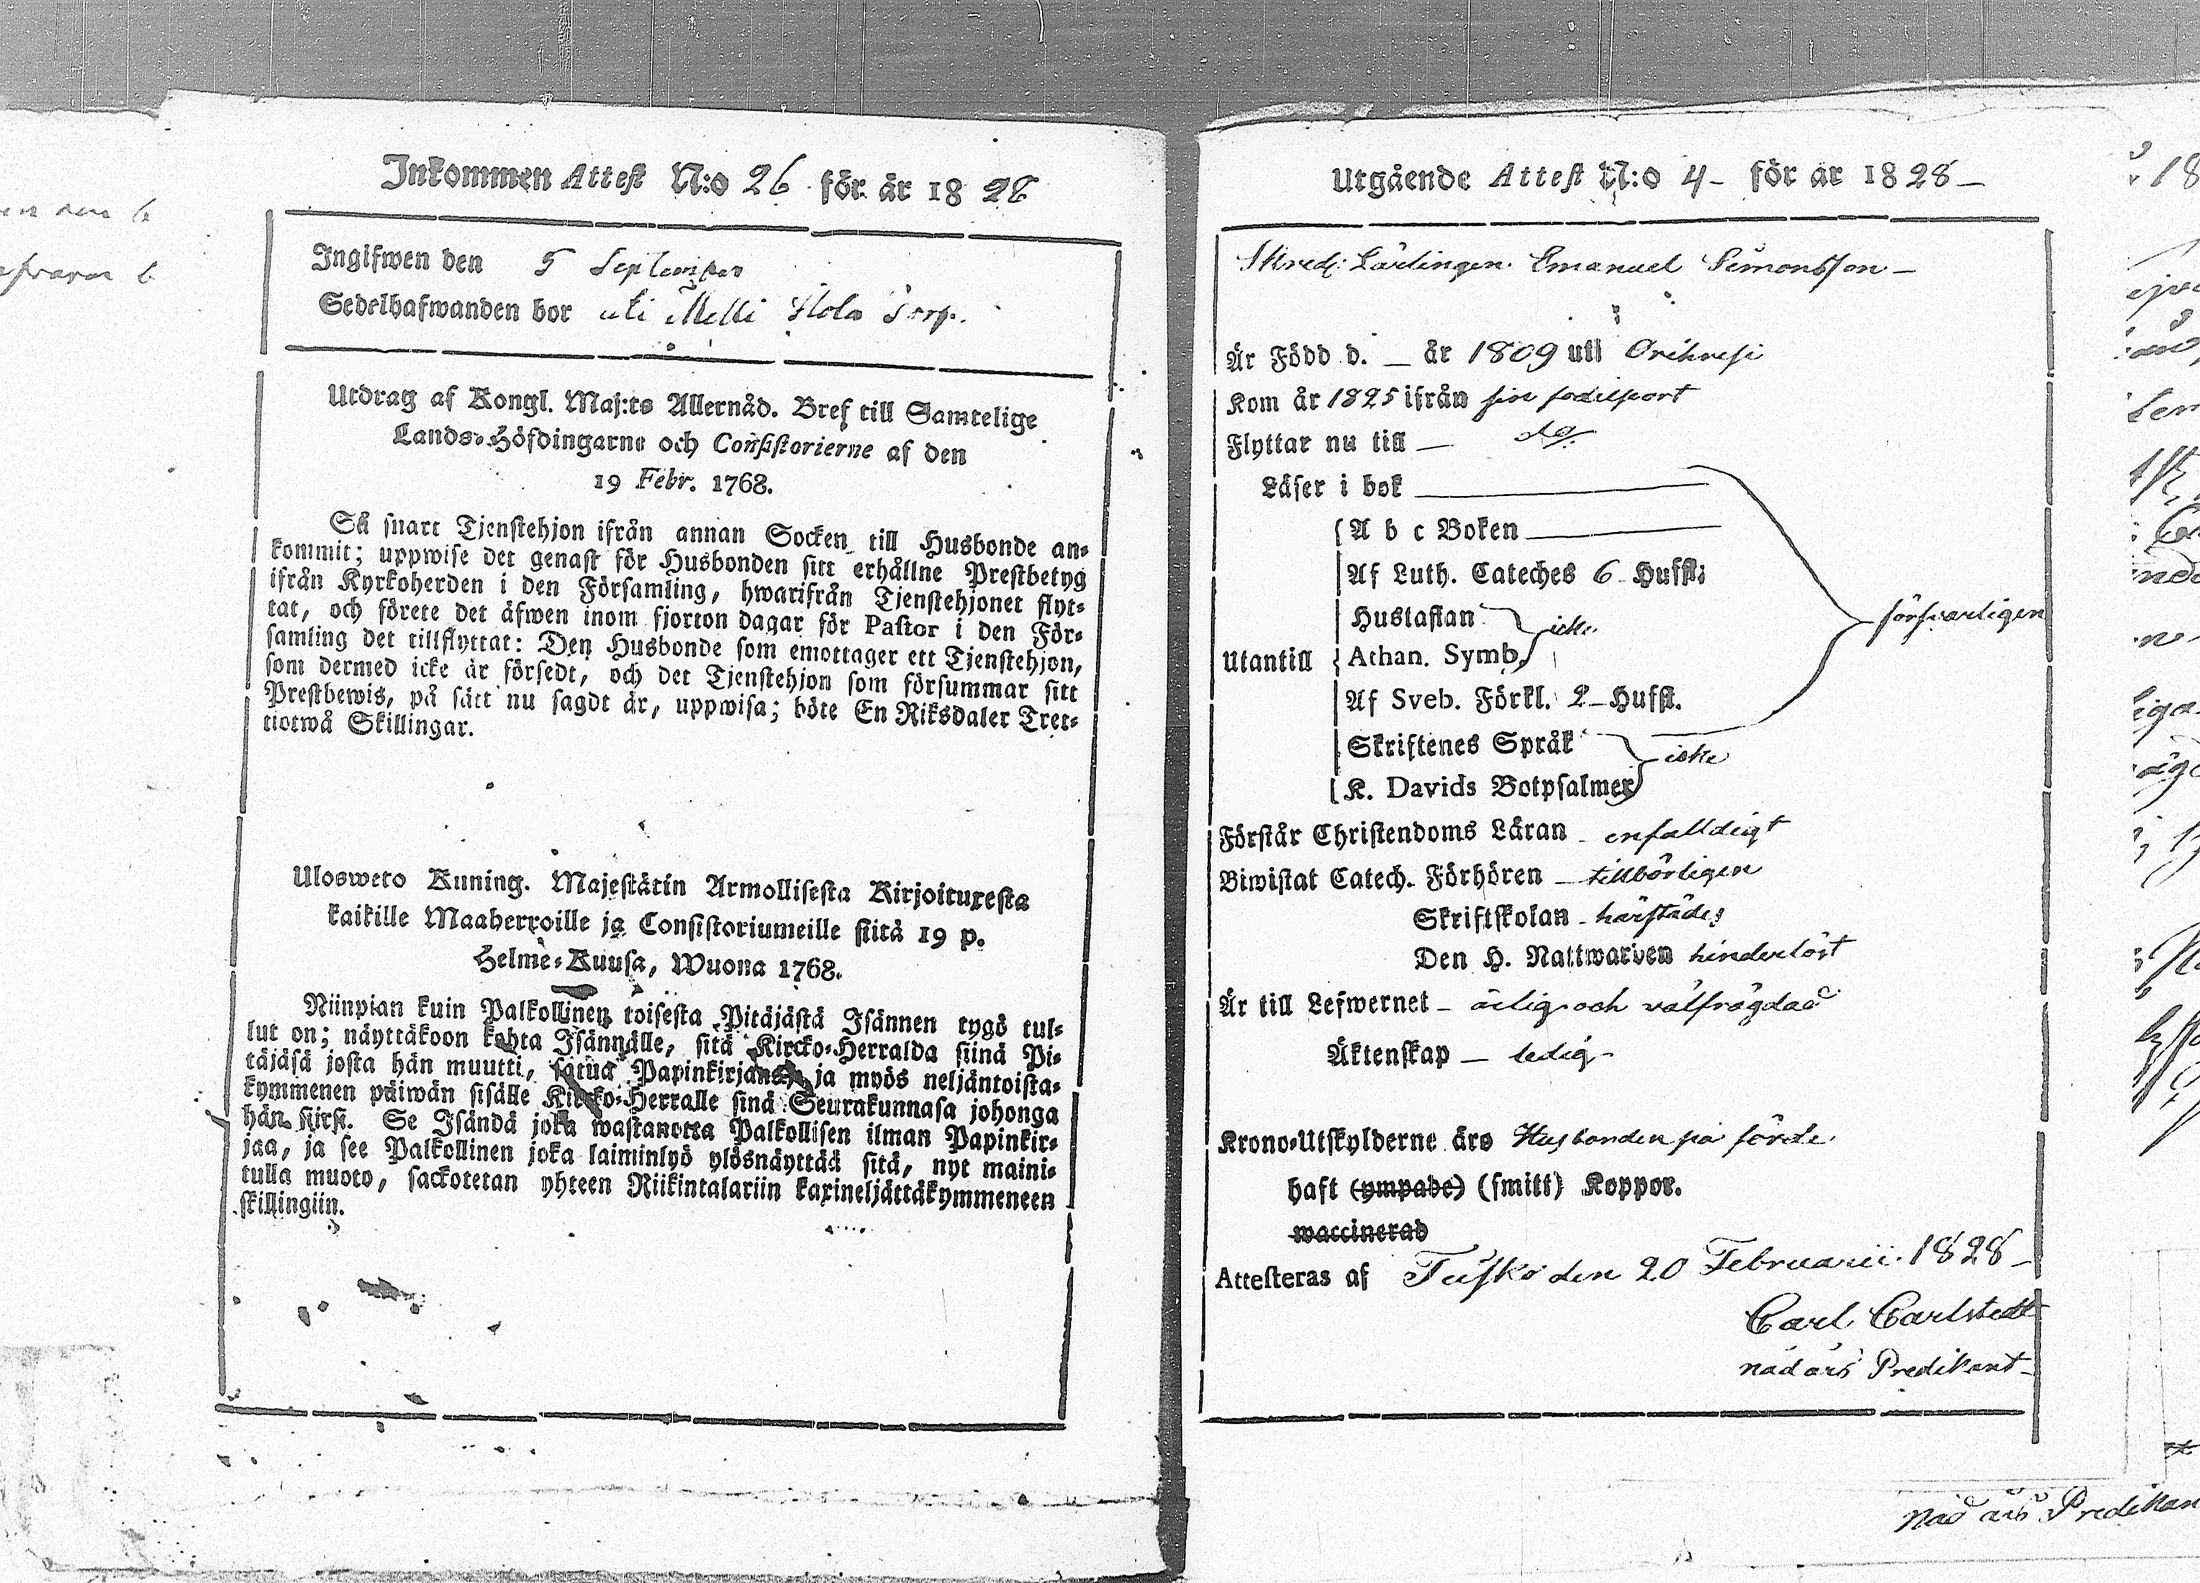 Inkommen Attest N:o 26 för år 1828
Ingifwen den 5 September
Sedelhafwanden bor uti Torp.
Utdrag af Kongl. Maj:ts Allernåd. Bref till Samtelige
Lands-Höfdingarne och Consistorierne af den
19 Febr. 1768.
Så snart Tjenstehjon ifrån annan Socken till Husbonde an-
kommit; uppwise det genast för Husbonden sitt erhållne Prestbetyg
ifrån Kyrkoherden i den Församling, hwarifrån Tjenstehjonet flyt-
tat, och förete det äfwen inom fjorton dagar för Pastor i den För-
samling det tillflyttat: Den Husbonde som emottager ett Tjenstehjon,
som dermed icke är försedt, och det Tjenstehjon som försummar sitt
Prestbewis, på sätt nu sagdt är, uppwisa; böte En Riksdaler Tret-
tiotwå Skillingar.
Ulosweto Kuning. Majestätin Armollisesta Kirjoituxesta
kaikille Maaherroille ja Consistoriumeille siitä 19 p.
Helme-Kuusa, Wuona 1768.
Niinpian kuin Palkollinen toisesta Pitäjästä Isännen tygö tul-
lut on; näyttäkoon kohta Isännälle, sitä Kircko-Herralda siinä Pi-
täjäsä josta hän muutti, satua Papinkirjansa, ja myös neljäntoista-
kymmenen päiwän sisälle Kircko-Herralle sinä Seurakunnasa johonga
hän siirsi. Se Isändä joka wastanotta Palkollisen ilman Papinkir-
jaa, ja see Palkollinen joka laiminlyö ylösnäyttää sitä, nyt maini-
tulla muoto, sackotetan yhteen Riikintalariin kaxineljättäkymmeneen
skillingiin.
Utgående Attest N:o 4 - för år 1828 -
Skred: Lärlingen Emanuel Simonsson -
Är Född d. - år 1809 uti Orihvesi
Kom år 1825 ifrån sin födelseort
Flyttar nu till - do
Läser i bok
A b c Boken
Af Luth. Cateches 6 Huffst:
Hustaflan
icke
försvarligen
Utantill Athan. Symb.
Af Sveb. Förkl. 2 - Hufst.
Skriftenes Språk
icke
K. Davids Botpsalmer
Förstår Christendoms Läran - enfalldigt
Biwistat Catech. Förhören - tillbörligen
Skriftskolan - härstädes
Den H. Nattwarden hinderlöst
Är till Lefwernet - ärlig och välfrägdad
Äktenskap - ledig -
Krono-Utskylderne äro Husbonden på förde.
haft (ympade) (smitt) Koppor.
waccinerad
Attesteras af den 20 Februarii 1828 -
Carl Carlstedt
nåd års Predikant -
nåd års Predikan